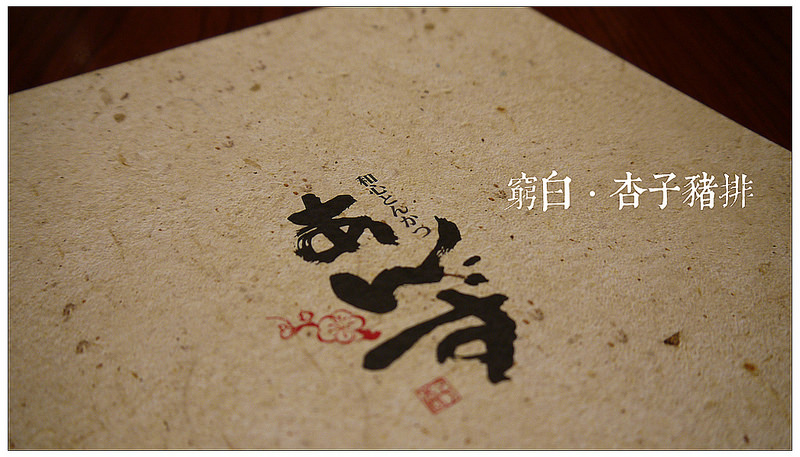 和心とんかつ
あんずや
窮白．杏子豬排